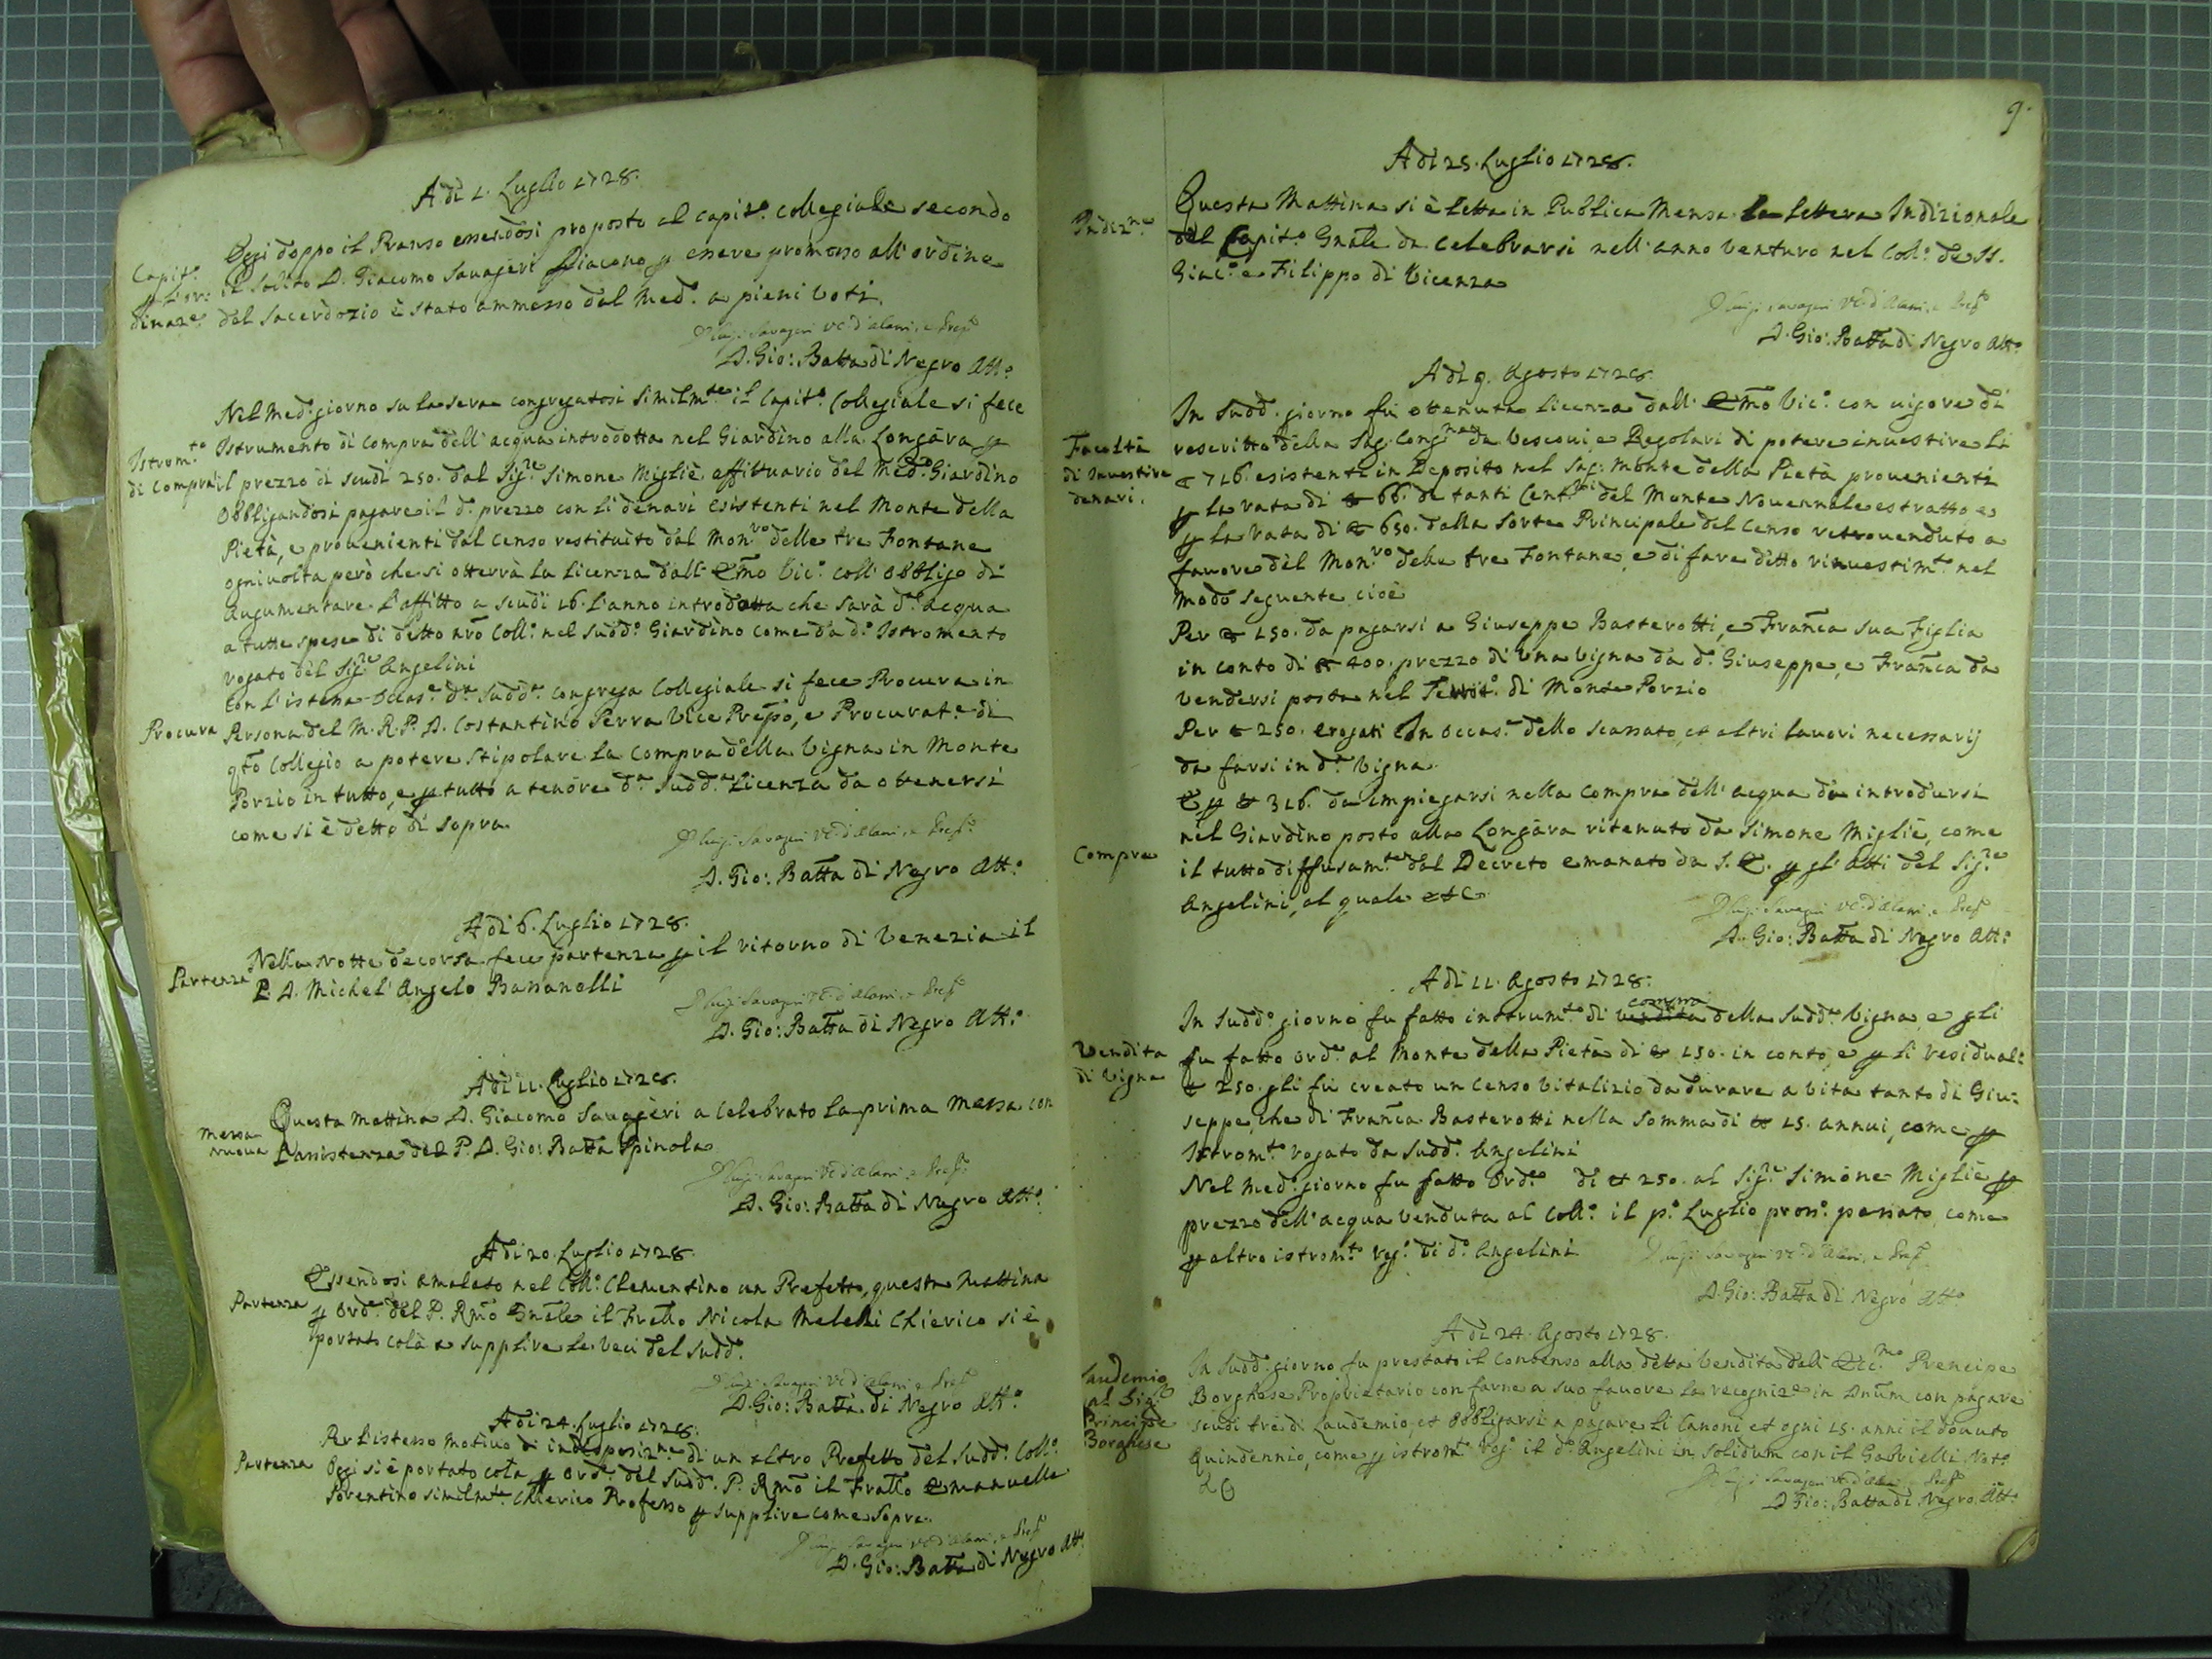 A dì 1. Luglio 1728.
Capit.o
p l'or:
dinaz.e
Oggi doppo il Pranso essendosi proposto al capit.o collegiale secondo
il solito D. Giacomo Savageri Diacono p essere promosso all'ordine
del sacerdozio è stato ammesso dal Med.o a pieni voti.
D. Gio: Batta di Negro Att.o
Nel Med.o giorno su la sera congregatosi similm.te il Capit.o Collegiale si fece
Istrom.to
di compra
Istrumento di compra dell'acqua introdotta nel Giardino alla Longara p
il prezzo di scudi 250. dal Sig.re Simone Migliè affittuario del Med.o Giardino
obbligandosi pagare il d.o prezzo con li denari esistenti nel Monte della
Pietà, e provenienti dal censo restituito dal Mon.ro delle tre Fontane
ognivolta però che si otterrà la licenza dall' Emo Vic.o coll'obbligo di
augumentare l'affitto a scudi 16. l'anno introdotta che sarà d.a acqua
a tutte spese di detto nro Coll.o nel sudd.o Giardino come da d.o Istromento
rogato del Sig.re Angelini
Con l'istessa occas.e d.a sudd.a congrega Collegiale si fece Procura in
Procura
Persona del M.R.P. D. Costantino Perra Vice Prepo, e Procurat.e di
qto Collegio a potere stipolare la compra della Vigna in Monte
Porzio in tutto, e p tutto a tenore d.a sudd.a Licenza da ottenersi
come si è detto di sopra.
D. Gio: Batta di Negro Att.o
A dì 6. Luglio 1728.
Partenza
Nella notte decorsa fece partenza p il ritorno di Venezia il
P. D. Michel'Angelo Bassanelli
D. Gio: Batta di Negro Att.o
A dì 11. Luglio 1728.
Messa
nuova
Questa mattina D. Giacomo Savageri a celebrato la prima messa con
l'assistenza del P. D. Gio: Batta Spinola
D. Gio: Batta di Negro Att.o
A dì 20. Luglio 1728.
Partenza
Essendosi amalato nel Coll.o Clementino un Prefetto, questa mattina
p ord.e del P. Rmo Gnale il Fratello Nicola Melelli Chierico si è
portato colà a supplire le veci del sudd.o
D. Gio: Batta di Negro Att.o
A dì 24. Luglio 1728.
Partenza
Per l'istesso motivo di indisposiz.ne di un altro Prefetto del sudd.o Coll.o
Oggi si è portato colà p ord.e del sudd.o P. Rmo il Fratello Emanuelle
Sorentino similm.te Chierico Professo p supplire come sopra.
D. Gio: Batta di Negro Att.o
9.
A dì 25. Luglio 1728.
Indiz.ne
Questa Mattina si è letta in Publica Mensa la lettera Indizionale
del Capit.o Gnale da celebrarsi nell'anno venturo nel Coll.o de SS.
Giac.o e Filippo di Vicenza
D. Gio: Batta di Negro Att.o
A dì 9. Agosto 1728.
Facoltà
di investire
denari.
In sudd.o giorno fu ottenuta licenza dall' Emo Vic.o con vigore di
rescritto della Sag. Cong.ne da Vescovi, e Regolari di potere investire li
716. esistenti in Deposito nel Sag: Monte della Pietà provenienti
p la rata di 66. di tanti Cent.ri del Monte Novennale estratto e
p la rata di 650. dalla sorte Principale del Censo retrovenduto a
favore del Mon.ro delle tre Fontane, e di fare ditto rinvestim.to nel
modo seguente cioè
Per 150. da pagarsi a Giuseppe Basterotti, e Franca sua Figlia
in conto di 400. prezzo di una Vigna da d.o Giuseppe, e Franca da
vendersi posta nel Territ.o di Monte Porzio
Per 250. erogati In occas.e dello scassato, et altri lavori necessarij
da farsi in d.a Vigna.
E p 316. da impiegarsi nella compra dell'acqua da introdursi
Compra
nel Giardino posto alla Longara ritenuto da Simone Migliè, come
il tutto diffusam.te dal Decreto emanato da S. E. p gl'Atti del Sig.re
Angelini, al quale etc
D. Gio: Batta di Negro Att.o
A dì 11. Agosto 1728.
Vendita
di Vigna
In sudd.o giorno fu fatto instrum.to di vendita compra della sudd.a Vigna, e gli
fu fatto ord.e al Monte della Pietà di 150. in conto, e p li residuali
250. gli fu creato un censo Vitalizio da durare a vita tanto di Giu:
seppe, che di Franca Basterotti nella somma di 15. annui, come p
Istrom.to rogato da sudd.o Angelini
Nel Med.o giorno fu fatto ord.e di 250. al Sig.re Simone Migliè p
prezzo dell'acqua venduta al Coll.o il p.o Luglio pros.o passato, come
p altro istrom.to rog.o di d.o Angelini
D. Gio: Batta di Negro Att.o
A dì 24. Agosto 1728.
Laudemio
al Sig.
Principe
Borghese
In sudd.o giorno fu prestato il consenso alla detta Vendita dall' Ecc.mo Prencipe
Borghese Proprietario con farne a suo favore la recogniz.e in Dnum con pagare
scudi tre di Laudemio, et obbligarsi a pagare li canoni et ogni 15. anni il dovuto
quindennio, come p istrom.to rog.o il d.o Angelini in solidum con il Gabrielli Not.o
D. Gio: Batta di Negro Att.o